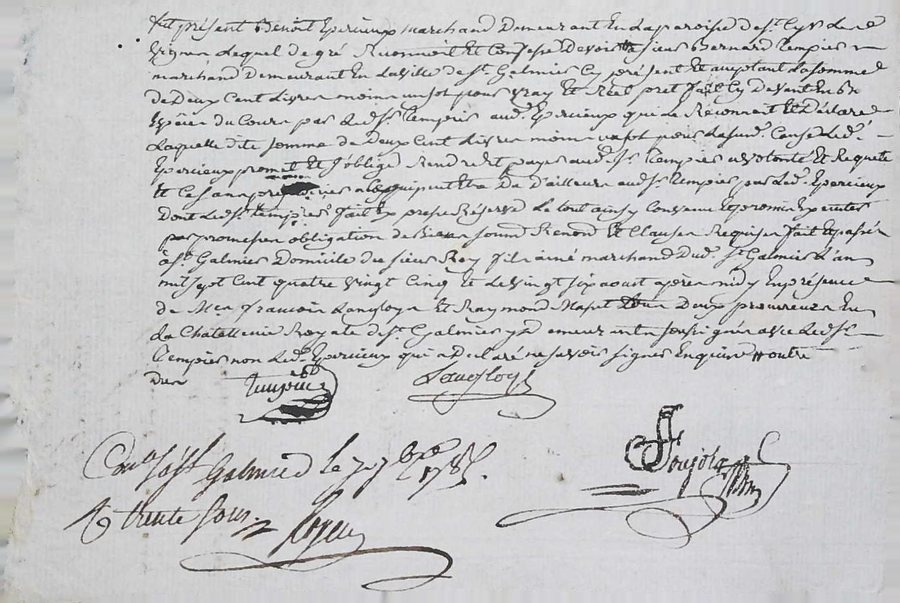 fut présent Benoit Epercieux marchand Demeurant En La paroisse de St. Cyr Les
Vignes Lequel de gré Reconnoit Et Confesse Devoir à sieur Bernard Tempier
marchand Demeurant En La ville de St. Galmier Cy présent Et acceptant La somme
de Deux Cent Livres moins un sol pour vray Et réel pret fait Cy Devant En
Espèces du Cours par Led. sr. Tempier aud. Epercieux qui Le Reconnoit Et Déclare
Laquelle dite somme de Deux Cent Livres moins un sol pour La susd. Cause Led.
Epercieux promet Et s'oblige Rendre Et payer aud. sr. Tempier à volonté Et Requete
Et Ce sans préjudice à Ce qui peut Etre Du D'ailleurs aud. sr. Tempier par Led. Epercieux
Dont Led. sr. Tempier fait Expresse Réserve Le tout ainsy Convenu Et promis Executer
par promesses obligation de Biens soumis Renond. Et Clauses Requises fait Et passé
à St. Galmier Domicile du sieur Rey fils ainé marchand Dud. St. Galmier L'an
mil sept Cent quatre vingt Cinq Et Le vingt six aout après midy En présence
de Mes. françois Langloys Et Raymond Deux procureurs En
La Chatellenie Royale de St. Galmier y demeurant soussignés avec Led. sr.
Tempier non Led. Epercieux qui a Déclaré ne savoir signer Enquis Et outre
Du
Tempier Langloys
Con.le à St. Galmier le 7 7bre 1785.
R trente sous